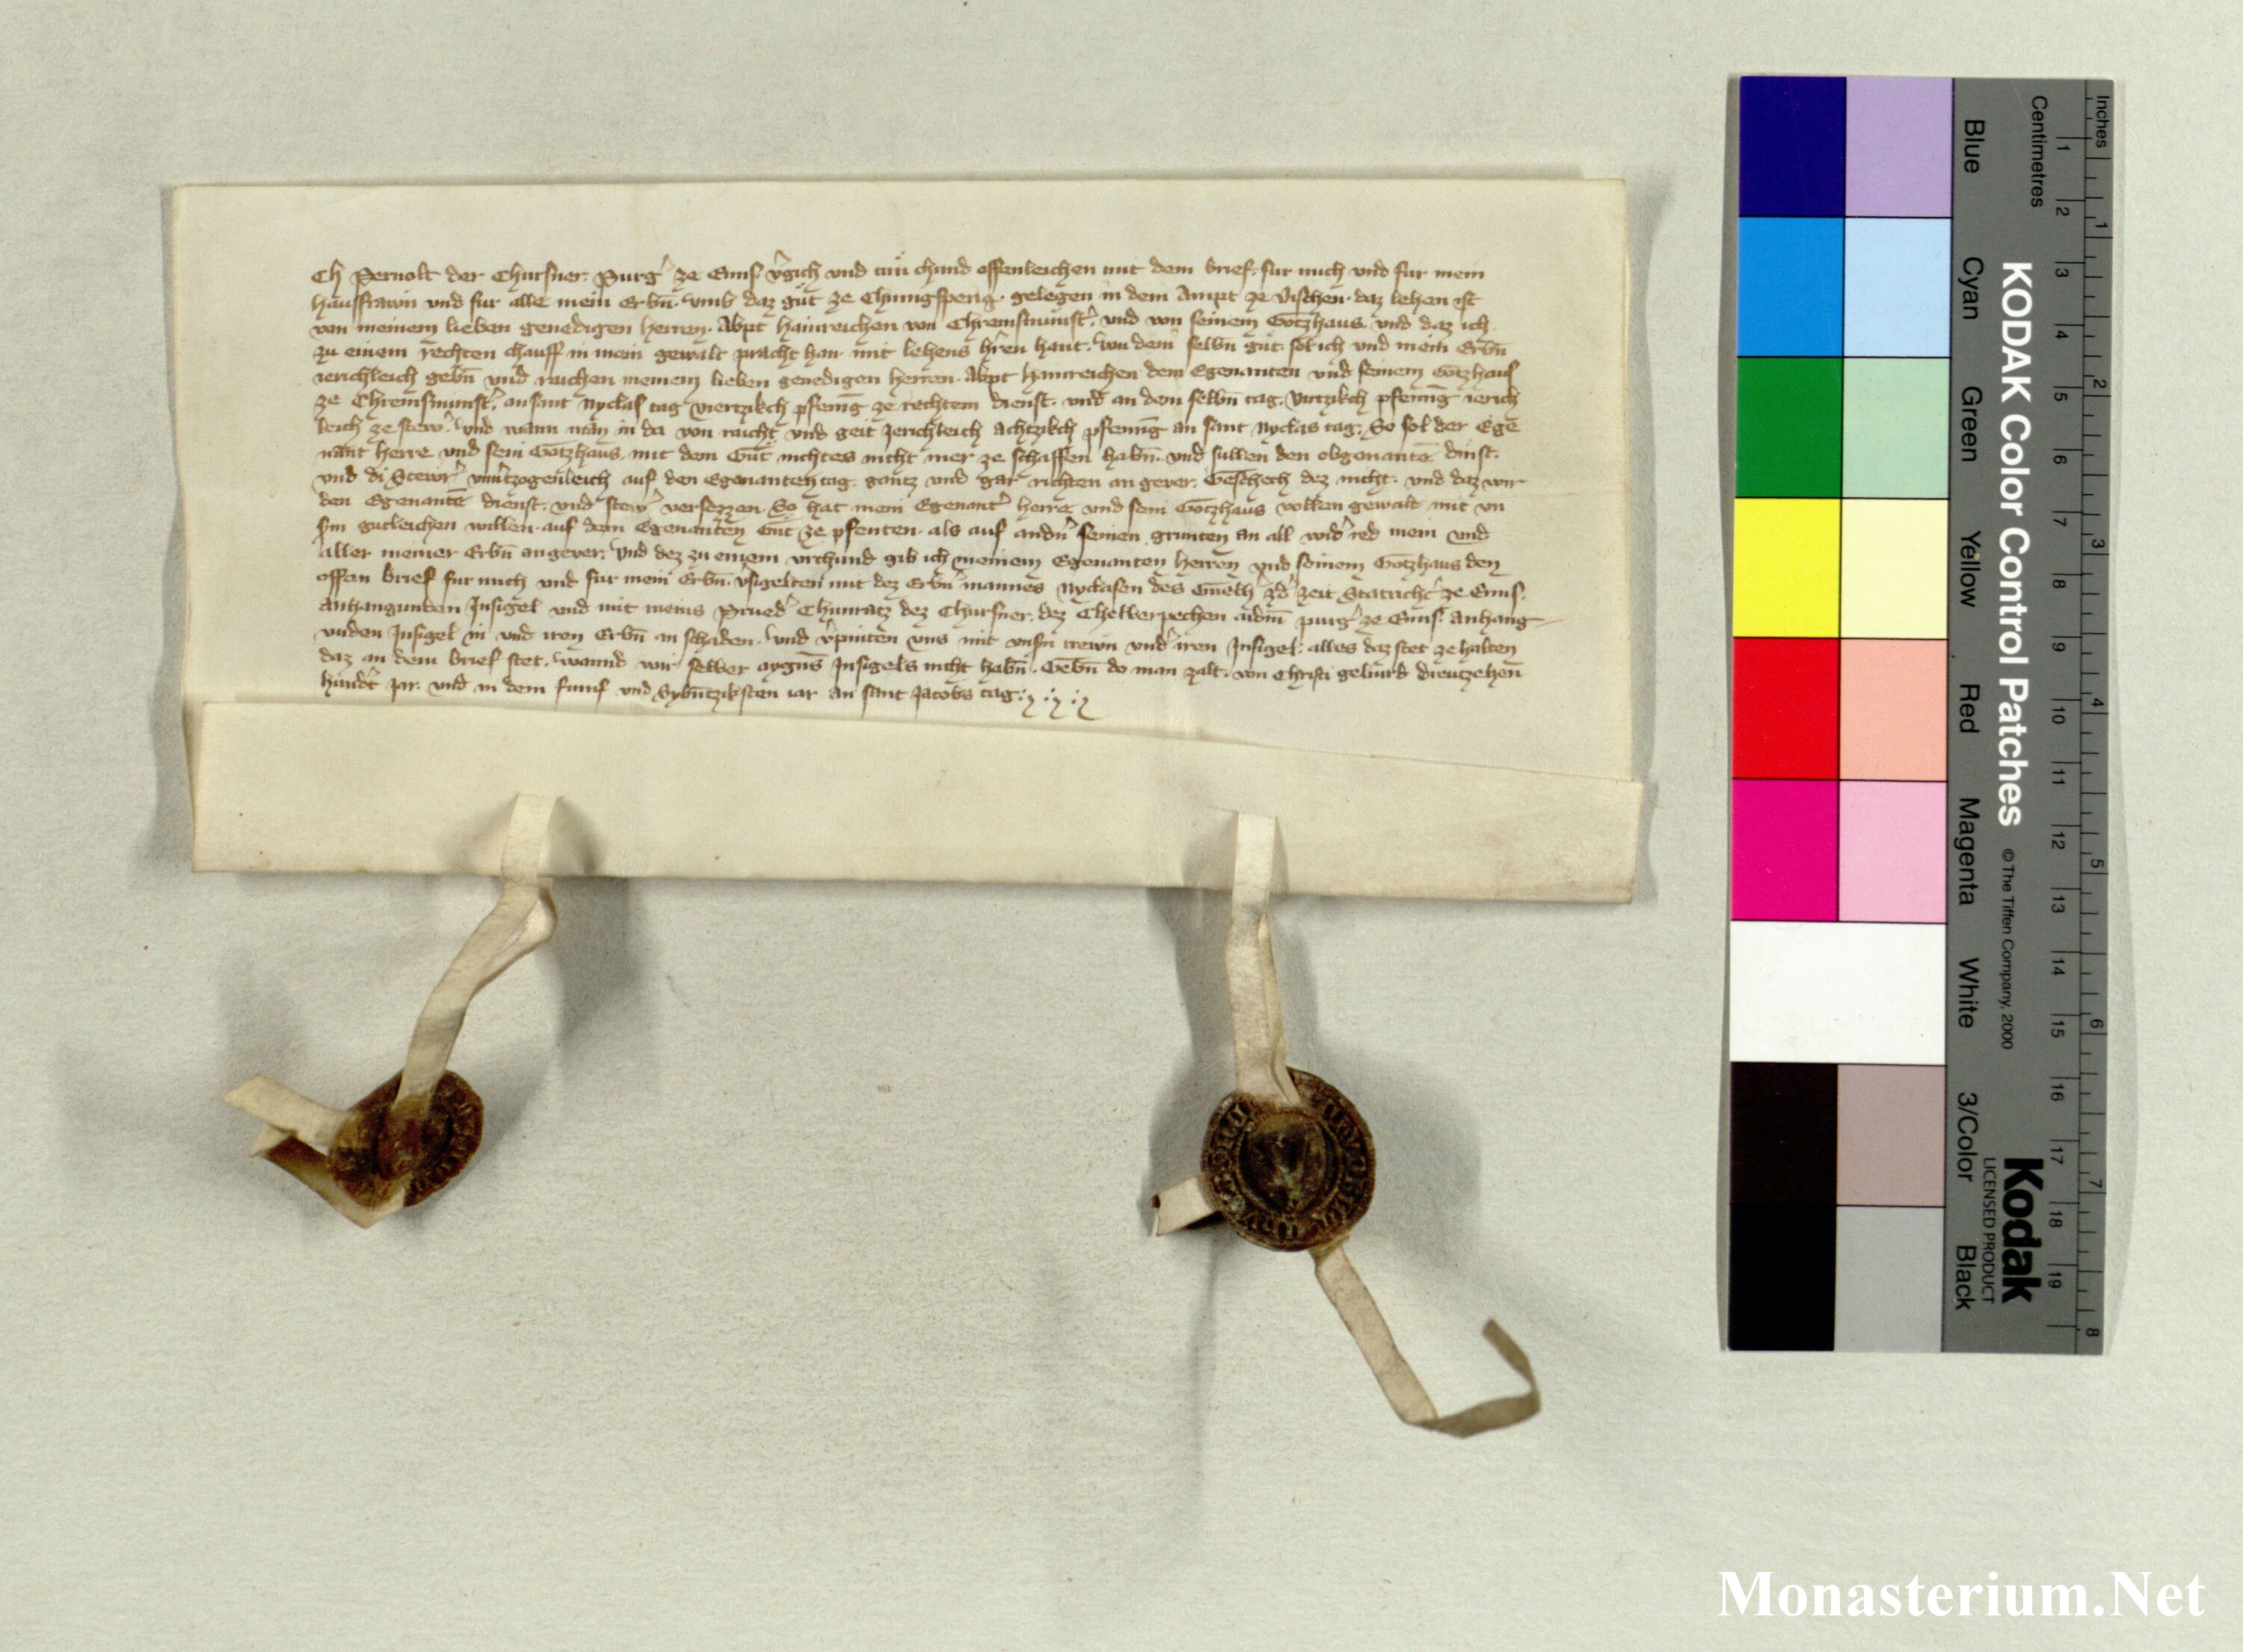 Ch Pernolt der Chursner. Purg' ze Enns v'gich und tun chund offenleichen mit dem brief. fur mich und fur mein
hausfrawn und fur alle mein Erbn. Umb daz gut ze Chunigsperig. gelegen in dem Ampt ze Vischen. daz lehen ist
von meinem lieben genedigen herren. Abpt hainreichen von Chremsmunst'. und von seinem Gotzhaus. und daz ich
zu einem rechten chauff in mein gewalt pracht han mit lehens h'ren hant. Von dem selbn gut. sol ich und mein Erbn
ierichleich gebn und raichen meinem lieben genedigen herren. Abpt hainreichen dem Egenanten und seinem Gotzhaus
ze Chremsmunst'. an sant Nyclas tag viertzikch pfenig ze rechtem dienst. und an dem selbn tag. virtzikch pfennig ierich
leich ze stew'. Und wann man in da von raicht und geit Jerichleich Achtzikch pfennig an sant Nyclas tag. So sol der Ege
nant herre und sein Gotzhaus. mit dem Gut nichtes nicht mer ze schaffen habn. und sullen den obgenante dinst.
und di Stewr' unv'tzogenleich auf den Egenanten tag. gantz und gar richten an gever. Geschech dez nicht. und daz wir
den Egenante dienst. und stew' versezzen. So hat mein Egenant' herre und sein Gotzhaus vollen gewalt mit un
s'm gutleichen willen. auf dem Egenanten Gut ze pfenten. als auf andn' seinen grunten an all wid'red mein und
aller meiner Erbn an gever. Und dez zu einem urchund gib ich meinem Egenanten herren und seinem Gotzhaus den
offen brief fur mich und fur mein Erbn. v'sigelten mit dez Erbn' mannes Nyclasen des zd' zeit Statricht' ze Enns.
Anhangunden Insigel und mit meins Prued' Chunratz dez Chursner. dez Chellerpechen aidm purg' ze Enns. Anhang
unden Insigel in und iren Erbn an schaden. Und v'pinten uns mit unsn trewn und' iren Insigel. alles daz stet ze halten
daz an dem brief stet. Wannd wir selber aygns Insigels nicht habn. Gebn do man zalt. von Christi geburd dreutzehen
hundt' Jar. und in dem funf und Sybntzikisten iar an sant Jacobs tag
KODAK Color Control Patches
© The Tiffen Company, 2000
Kodak
LICENSED PRODUCT
Inches 1 2 3 4 5 6 7 8
Centimetres 1 2 3 4 5 6 7 8 9 10 11 12 13 14 15 16 17 18 19
Blue
Cyan
Green
Yellow
Red
Magenta
White
3/Color
Black
Monasterium.Net